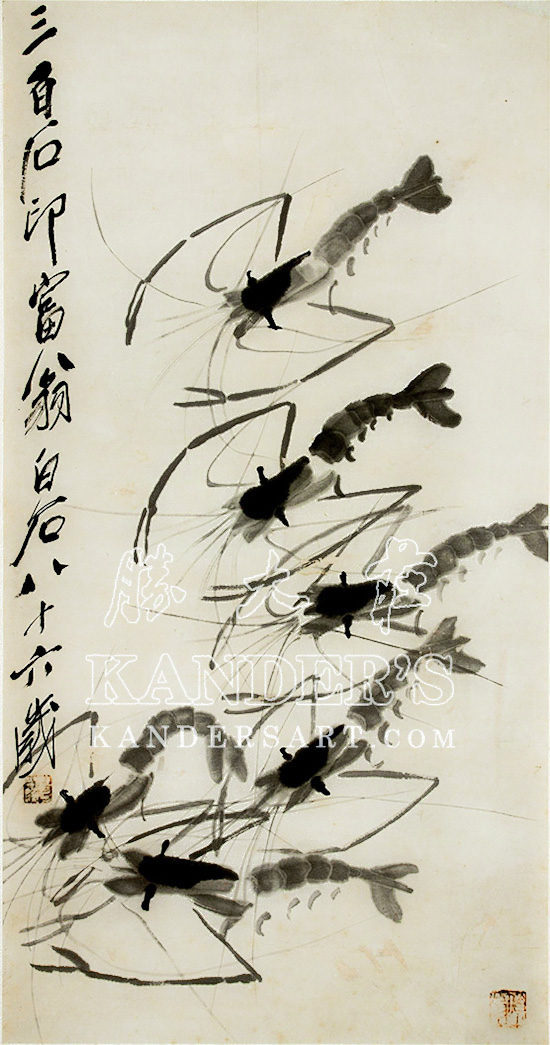 三百石印富翁白石八十六歲
勝大莊
KANDER'S
KANDERSART.COM